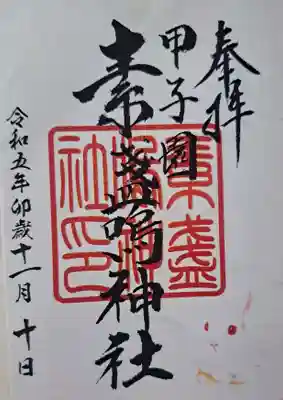 奉拝
甲子園
素盞嗚神社
令和五年卯歳十一月十日
素盞
嗚神
社印